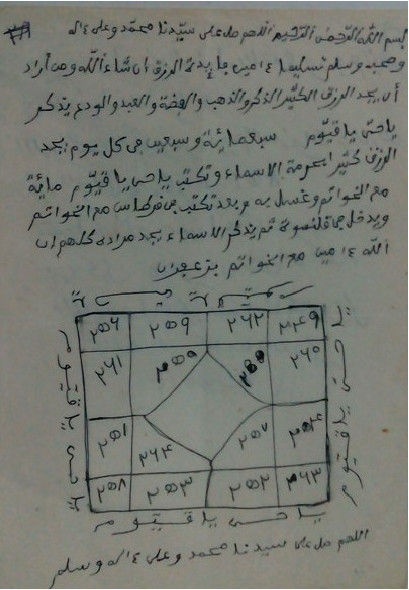 بسم الله الرحمن الرحيم اللهم صل على سيدنا محمد وعلى ءاله
وصحبه وسلم تسليما ءامين فايدة الرزق ان شاء الله ومن أراد
أن يجد الرزق الكثير الذكر والذهب والفضة والعبد والودع يذكر
ياحي ياقيوم سبعمائة وسبعين في كل يوم يجد
الرزق كثيرا بحرمة الاسماء وتكتب ياحي ياقيوم مائة
مع الخواتم وغسل به وبعد تكتب في قرطاس مع الخواتم
ويدخل ثم يذكر الاسماء يجد مراده كلهم ان
الله ءامين مع الخواتم بزعفران
٢٤٩ ٢٦٢ ٢٥٩ ٢٥٦
٢٦٠ ٢٥٥ ٢٥٠ ٢٦١
٢٥٤ ٢٥٧ ٢٦٤ ٢٥١
٢٦٣ ٢٥٢ ٢٥٣ ٢٥٨
يا حي يا قيوم
يا حي يا قيوم
يا حي يا قيوم
اللهم صل على سيدنا محمد وعلى ءاله وسلم